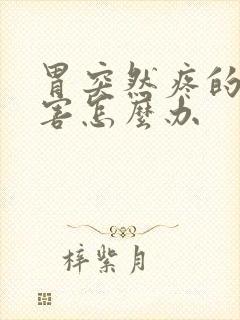 胃突然疼的
害怎麽办
梓紫月